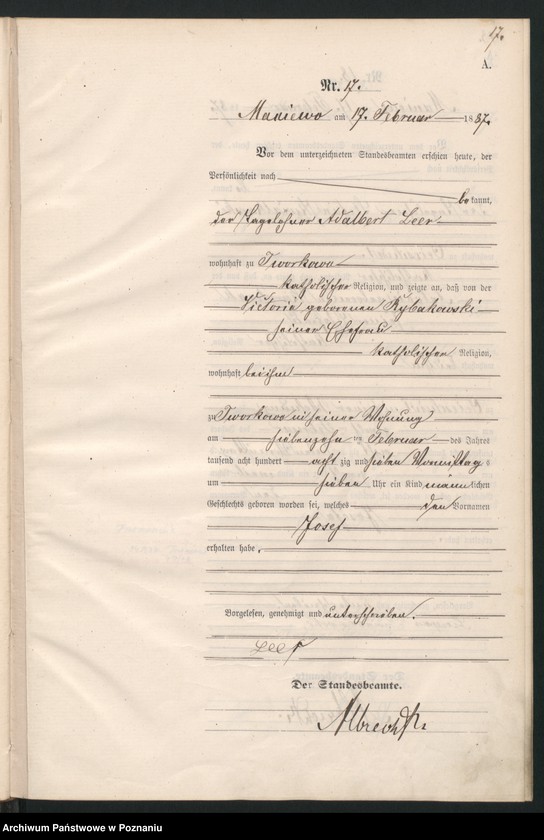 17.
A.
Nr. 17.
Maniewo am 17. Februar 1887.
Vor dem unterzeichneten Standesbeamten erschien heute, der
Persönlichkeit nach
bekannt,
der Tagelöhner Adalbert Leer
wohnhaft zu Tworkowo
katholischer Religion, und zeigte an, daß von der
Victoria geborenen Rybakowski
seiner Ehefrau
katholischer Religion,
wohnhaft bei ihm
zu Tworkowo in seiner Wohnung
am siebenzehn ten Februar des Jahres
tausend acht hundert acht zig und sieben Vormittag s
um sieben Uhr ein Kind männlichen
Geschlechts geboren worden sei, welches den Vornamen
Josef
erhalten habe.
Vorgelesen, genehmigt und unterschrieben.
Leer
Der Standesbeamte.
Albrecht
Archiwum Państwowe w Poznaniu